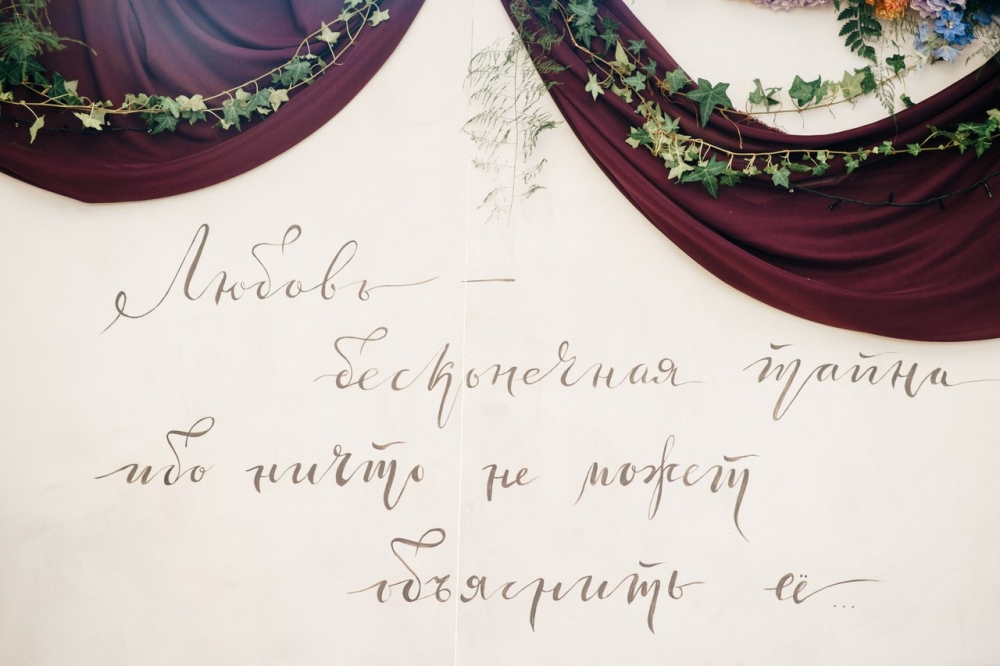 Любовь —
бесконечная тайна
ибо ничто не может
объяснить её...